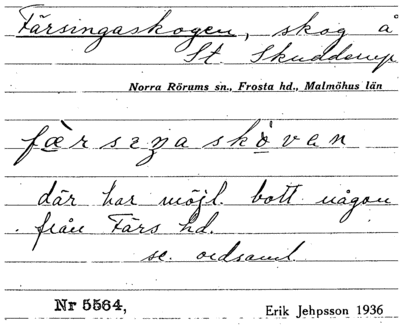 Färsingaskogen, skog å
St. Skuddarp
Norra Rörums sn., Frosta hd., Malmöhus län
fæ̀rsɪŋaskò̤van
där har möjl. bott någon
från Färs hd.
se. ordsaml.
Nr 5564, Erik Jehpsson 1936